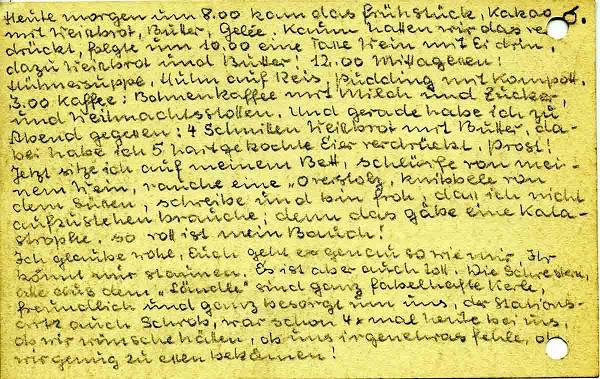 Heute morgen um 8.00 kam das Frühstück, Kakao 6.
mit Weißbrot, Butter, Gelée. Kaum hatten wir das ver
drückt, folgte um 10.00 eine Tasse Wein mit Ei drin,
dazu Weißbrot und Butter! 12.00 Mittagessen!
Hühnersuppe, Huhn auf Reis, Pudding mit Kompott.
3.00 Kaffee: Bohnenkaffee mit Milch und Zucker,
und Weihnachtsstollen. Und gerade habe ich zu
Abend gegessen: 4 Schnitten Weißbrot mit Butter, da-
bei habe ich 5 hartgekochte Eier verdrückt. Prost!
Jetzt sitze ich auf meinem Bett, schlürfe von mei-
nem Wein, rauche eine "Overstolz, knibbele von
dem Süßen, schreibe und bin froh, daß ich nicht
aufzustehen brauche; denn das gäbe eine Kata-
strophe. so voll ist mein Bauch!
Ich glaube wohl, Euch geht es genau so wie mir, Ihr
könnt nur staunen. Es ist aber auch toll. Die Schwestern,
alle aus dem "Ländle" sind ganz fabelhafte Kerle,
freundlich und ganz besorgt um uns, der Stations-
arzt auch Schwob, war schon 4 x mal heute bei uns,
ob wir wünsche hätten, ob uns irgenetwas fehle, ob
wir genug zu essen bekämen!